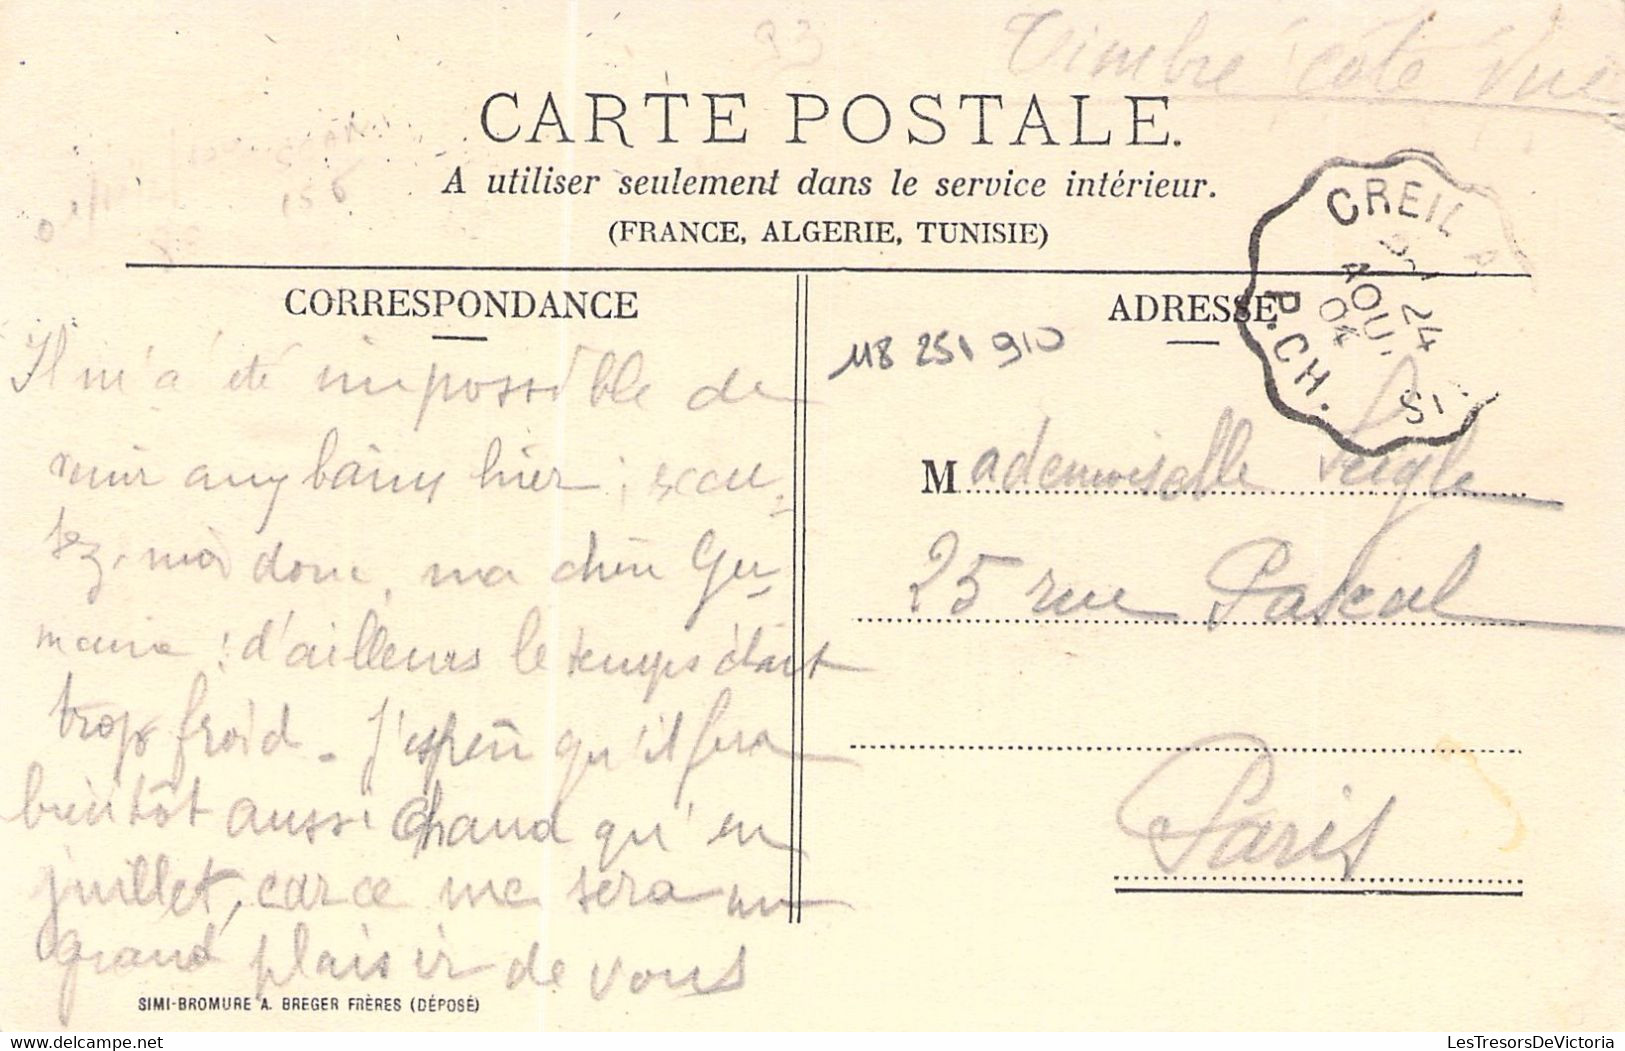 93
Timbré côté Vue
CARTE POSTALE.
A utiliser seulement dans le service intérieur.
(FRANCE, ALGERIE, TUNISIE)
156
CREIL A
24
AOU.
04
P.CH.
SI
CORRESPONDANCE
ADRESSE
118 251 910
Il m'a été impossible de
aux bains hier ; écou-
tez-moi donc, ma chère Ger-
maine : d'ailleurs le temps était
trop froid. J'espère qu'il fera
bientôt aussi chaud qu'en
juillet, car ce me sera un
grand plaisir de vous
Mademoiselle
25 rue Pascal
Paris
SIMI-BROMURE A. BREGER FRÈRES (DÉPOSÉ)
LesTresorsDeVictoria